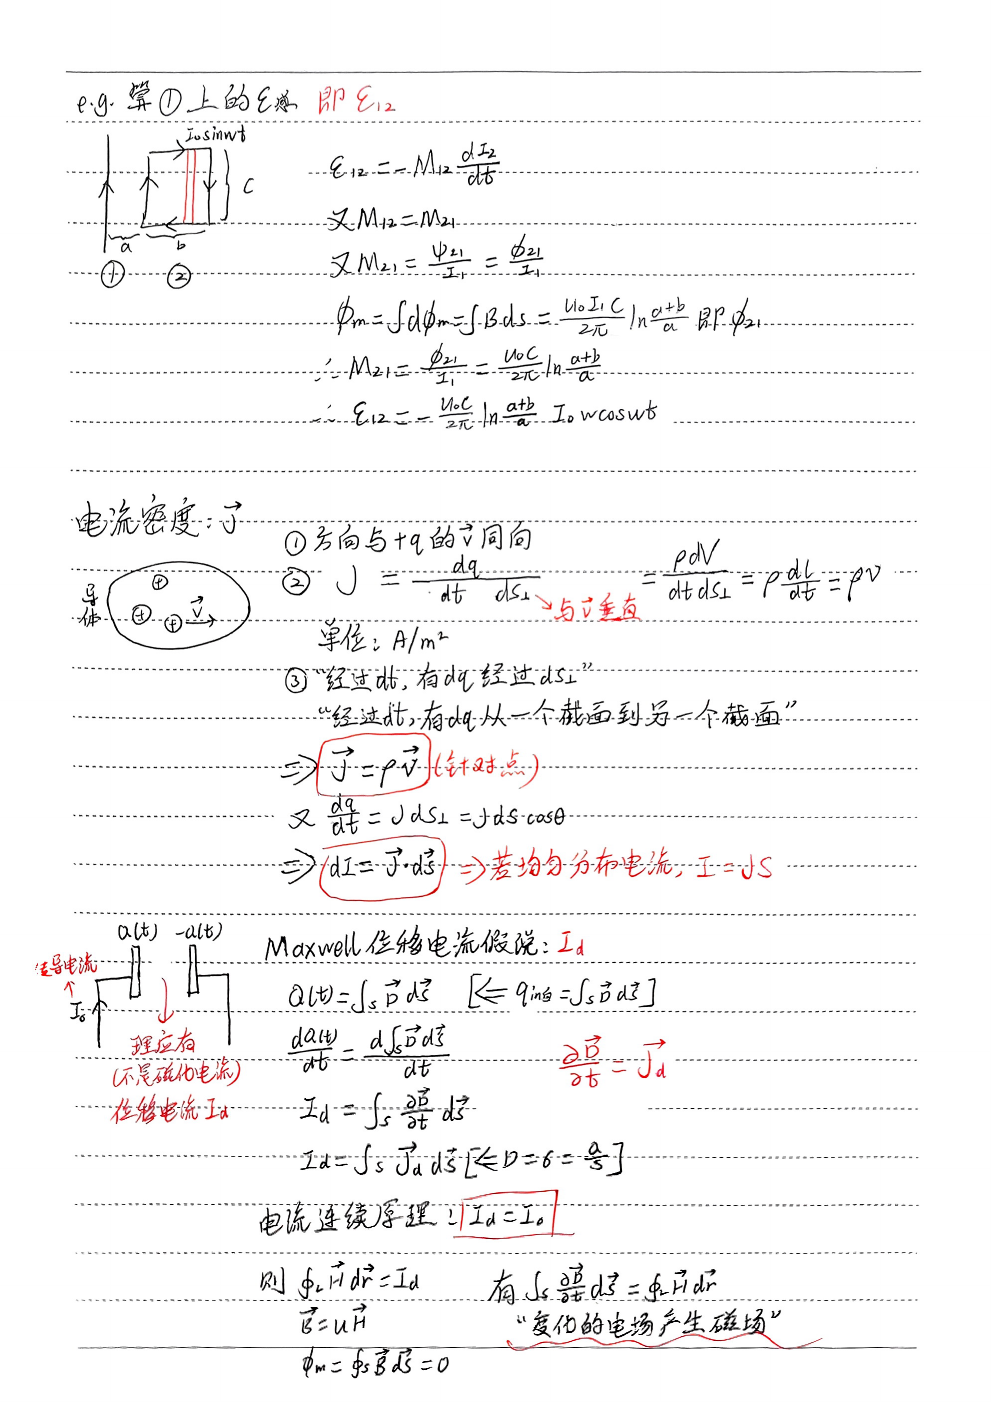 e.g. 算①上的ε感 即 ε12
I0sinwt
C
a
b
① ②
ε12 = -M12 dI2/dt
又 M12 = M21
又 M21 = Ψ21/I1 = Φ21/I1
Φm = ∫dΦm = ∫B ds = u0I1C/2π ln a+b/a 即 Φ21
∴ M21 = Φ21/I1 = u0C/2π ln a+b/a
∴ ε12 = - u0C/2π ln a+b/a I0 w coswt
电流密度: J⃗
导体
+ + + v⃗
① 方向与+q的v⃗同向
② J = dq/dt dS⊥ = ρdV/dt dS⊥ = ρ dl/dt = ρv
与v⃗垂直
单位: A/m²
③ “经过dt, 有dq 经过dS⊥”
“经过dt, 有dq从一个截面到另一个截面”
⇒ J⃗ = ρv⃗ (针对点)
又 dq/dt = J dS⊥ = J dS cosθ
⇒ dI = J⃗·dS⃗ ⇒ 若均匀分布电流, I = JS
Q(t) -Q(t)
传导电流
↑
I0
理应有
(不是磁化电流)
位移电流 Id
Maxwell 位移电流假说: Id
Q(t) = ∫S D⃗ dS⃗ [⇐ q自in = ∫S D⃗ dS⃗]
dQ(t)/dt = d∫S D⃗ dS⃗/dt
∂D⃗/∂t = J⃗d
Id = ∫S ∂D⃗/∂t dS⃗
Id = ∫S J⃗d dS⃗ [⇐ D = σ = Q/S]
电流连续原理: Id = I0
则 ∮L H⃗ dr⃗ = Id 有 ∫S ∂D⃗/∂t dS⃗ = ∮L H⃗ dr⃗
B⃗ = uH⃗ “变化的电场产生磁场”
Φm = ∮S B⃗ dS⃗ = 0